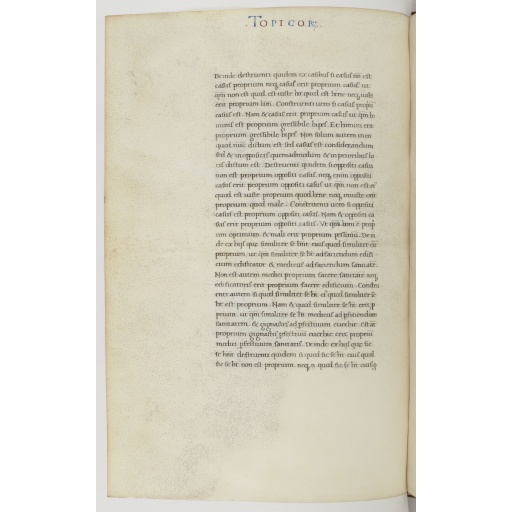 TOPICOR
Deinde destruenti quidem ex casibus si casus non est
casus proprium neq, casus erit proprium casus ut
qm̄ non est quod est iuste hoc quod est bene neq, iuste
erit proprium boni. Construenti uero si casus proprium
casus est. Nam & casus erit proprium casus ut qm̄ ho
minis est proprium gressibile bipes. Et homini erit
proprium gressibile bipes. Non solum autem in eo
quod nunc dictum est sed casus est considerandum
sed & in oppositis quemadmodum & in prioribus lo
cis dictum est. Destruenti quidem si oppositi casus
non est proprium oppositi casus, neq, enim oppositi
casus erit proprium oppositi casus ut qm̄ non est
quod est iuste proprium quod bene neq, iniuste erit
proprium quod male. Construenti uero si oppositi
casus est proprium oppositi casus. Nam & oppositi ca
sus erit proprium oppositi casus. Ut qm̄ boni ē propri
um optimum. & mali erit proprium pessimū. Dein
de ex his que similiter se hn̄t eius quod similiter
proprium. ut qm̄ similiter se ht̄ ad faciendum edifi
cium edificator & medicus ad faciendum sanitatē.
Non est autem medici proprium facere sanitatē neq
edificatoris erit proprium facere edificium. Constru
enti autem si quod similiter se ht̄ ei quod similiter se
ht̄ est proprium. Nam & quod similiter se ht̄ erit p
prium. ut qm̄ similiter se ht̄ medicus ad
sanitatem. & gignastes ad euechie. Est āt
proprium euechie erit proprium
medici sanitatis. Deinde ex his que sic
se hn̄t destruenti quidem si quod sic se ht̄ eius quod
sic se ht̄ non est proprium. neq, quod sic se ht̄ eius